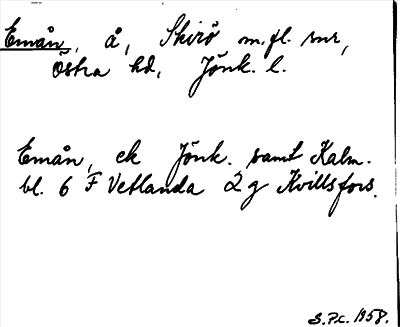 Emån, å, Skirö m.fl. snr,
Östra hd, Jönk. l.
Emån, ek Jönk. samt Kalm.
bl. 6 F Vetlanda 2g Kvillsfors.
S.P.c. 1958.